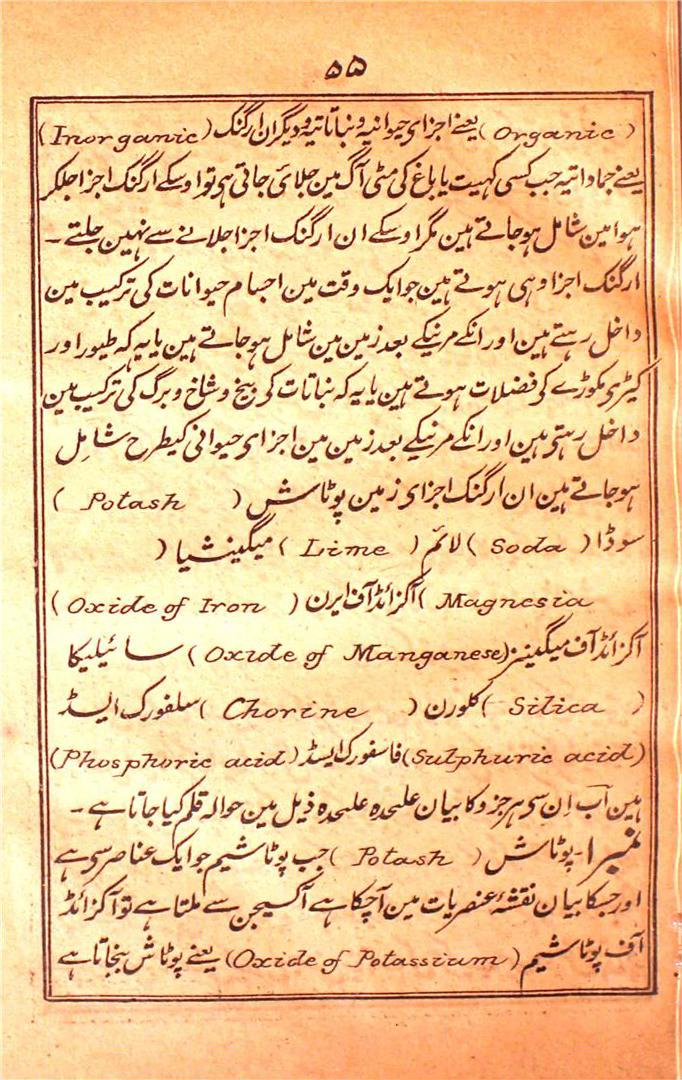 ۵۵
(Organic) یعنے اجزای حیوانیہ و نباتاتیہ و دیگر ان ارگنک (Inorganic)
یعنے جماداتیہ جب کسی کہیت یا باغ کی مٹی آگ مین جلائی جاتی ہی تو اوسکے ارگنک اجزا جلکر
ہوا مین شامل ہو جاتے ہین مگر اوسکے ان ارگنک اجزا جلانے سے نہین جلتے ۔
ارگنک اجزا وہی ہوتے ہین جو ایک وقت مین اجسام حیوانات کی ترکیب مین
داخل رہتے ہین اور انکے مرنیکے بعد زمین مین شامل ہو جاتے ہین یا یہ کہ طیور اور
کیڑی مکوڑے کی فضلات ہوتے ہین یا یہ کہ نباتات کی بیخ و شاخ و برگ کی ترکیب مین
داخل رہتی ہین اور انکے مرنیکے بعد زمین مین اجزای حیوانی کیطرح شامل
ہو جاتے ہین ان ارگنک اجزای زمین پوٹاسش (Potash)
سوڈا (Soda) لائم (Lime) میگینشیا (
Magnesia) آگزائڈ آف ایرن (Oxide of Iron)
آگزائڈ آف میگینیز (Oxide of Manganese) سائیلیکا
(Silica) کلورن (Chorine) سلفورک ایسڈ
(Sulphuric acid) فاسفورک ایسڈ (Phosphoric acid)
ہین اب اِن سی ہر جزو کا بیان علحدہ علحدہ ذیل مین حوالہ قلم کیا جاتا ہے ۔
نمبر ۱ ۔ پوٹاسش (Potash) جب پوٹاشیم جو ایک عناصر سی ہے
اور جسکا بیان نقشۂ عنصریات مین آچکا ہے آکسیجن سے ملتا ہے تو آگزائڈ
آف پوٹاشیم (Oxide of Potassium) یعنے پوٹاش بنجاتا ہے